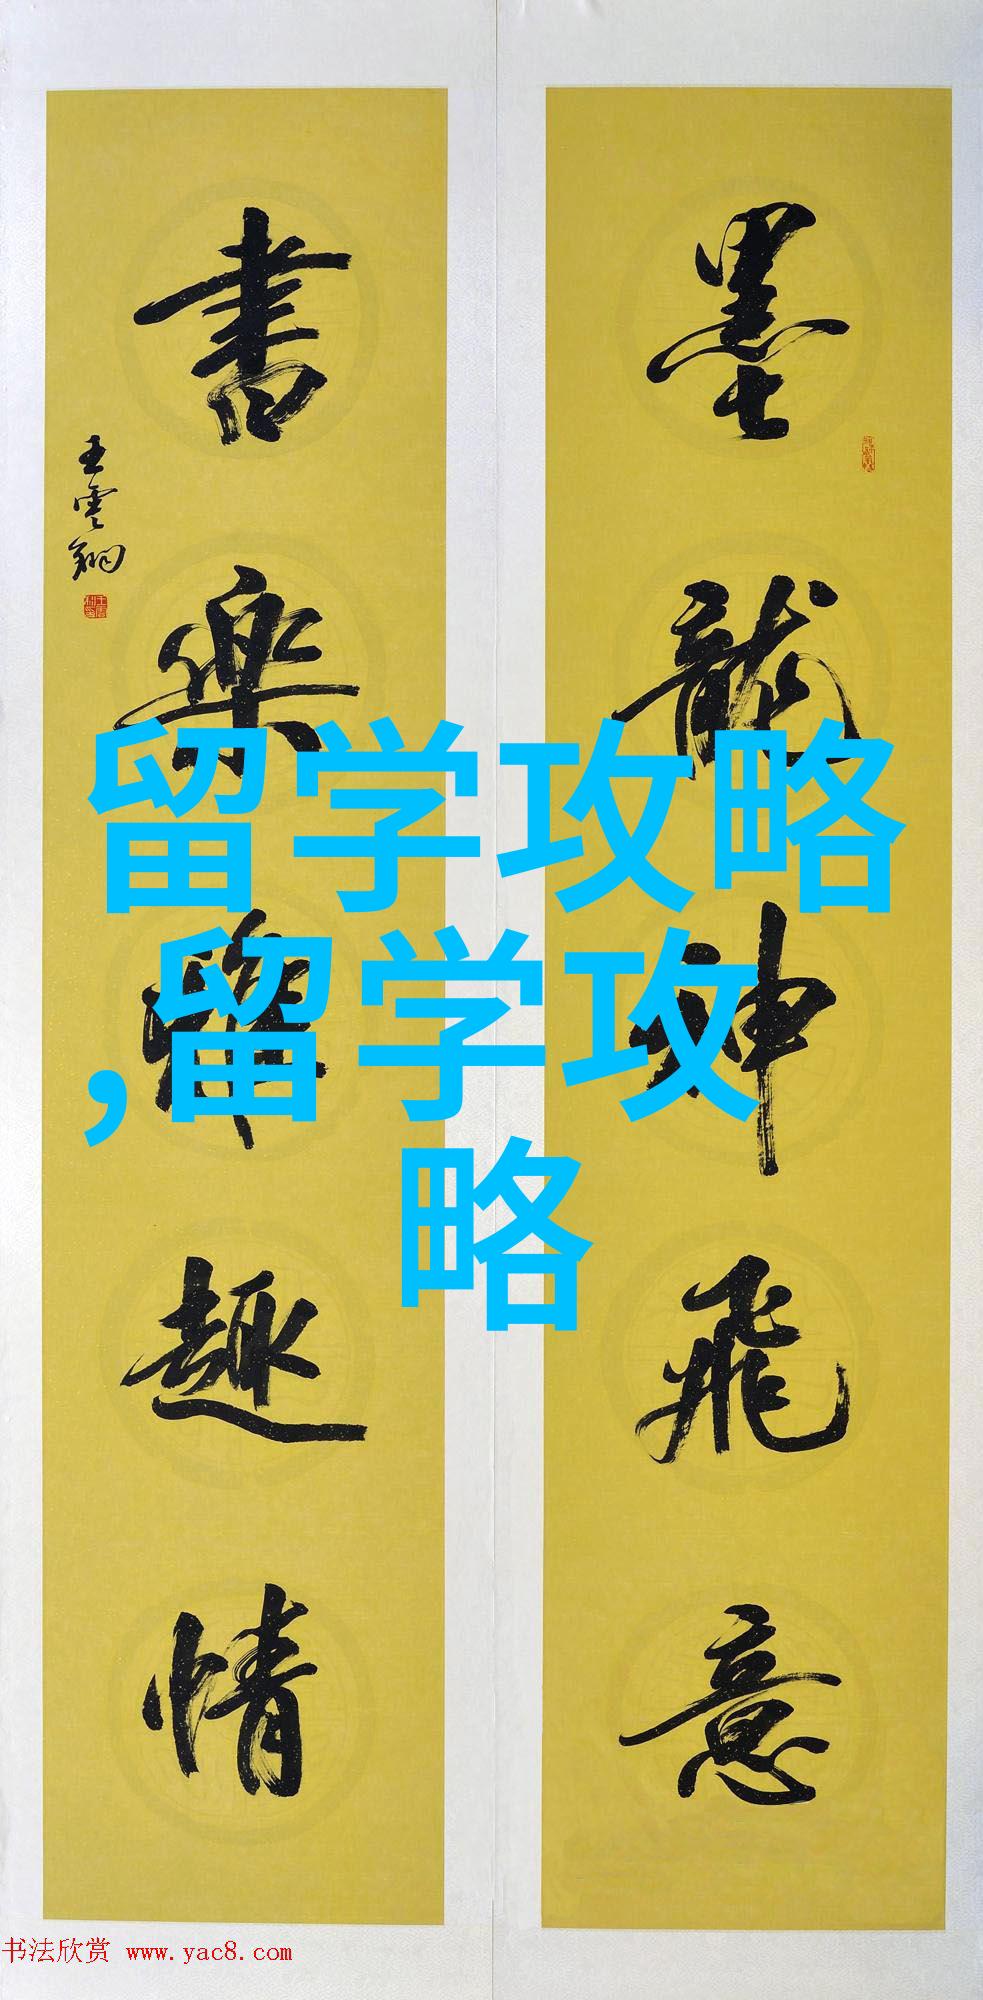 墨龍神飛意
書樂雅趣情
王雲翔
留学攻略
,留学攻
略
书法欣赏 www.yac8.com